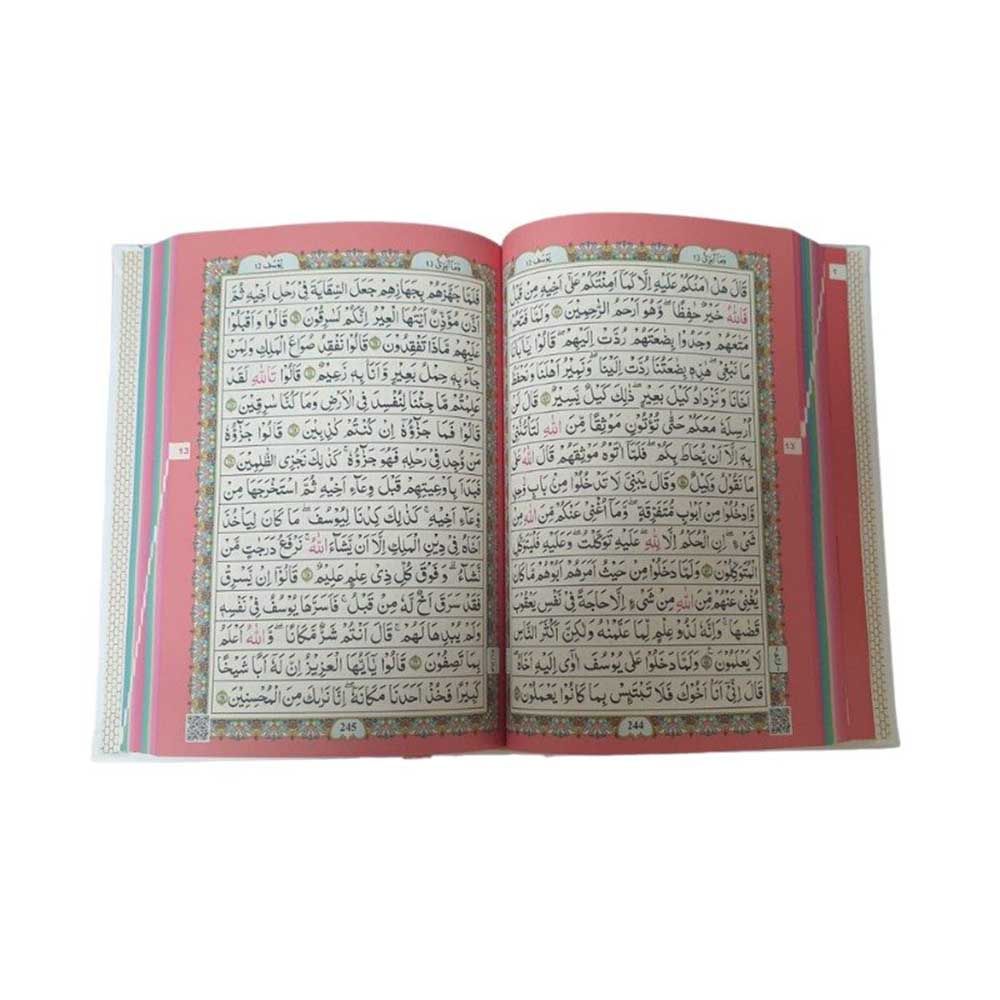 وَمَآ اُبَرِّئُ 13 يُوْسُف 12
قَالَ هَلْ اٰمَنُكُمْ عَلَيْهِ اِلَّا كَمَآ اَمِنْتُكُمْ عَلٰٓى اَخِيْهِ مِنْ قَبْلُ
فَاللّٰهُ خَيْرٌ حٰفِظًا ۪ وَّهُوَ اَرْحَمُ الرّٰحِمِيْنَ ۝ وَلَمَّا فَتَحُوْا
مَتَاعَهُمْ وَجَدُوْا بِضَاعَتَهُمْ رُدَّتْ اِلَيْهِمْ ؕ قَالُوْا يٰۤاَبَانَا
مَا نَبْغِيْ ؕ هٰذِهٖ بِضَاعَتُنَا رُدَّتْ اِلَيْنَا ۚ وَنَمِيْرُ اَهْلَنَا وَنَحْفَظُ
اَخَانَا وَنَزْدَادُ كَيْلَ بَعِيْرٍ ؕ ذٰلِكَ كَيْلٌ يَّسِيْرٌ ۝ قَالَ لَنْ
اُرْسِلَهٗ مَعَكُمْ حَتّٰى تُؤْتُوْنِ مَوْثِقًا مِّنَ اللّٰهِ لَتَاْتُنَّنِيْ
بِهٖٓ اِلَّآ اَنْ يُّحَاطَ بِكُمْ ۚ فَلَمَّآ اٰتَوْهُ مَوْثِقَهُمْ قَالَ اللّٰهُ عَلٰى
مَا نَقُوْلُ وَكِيْلٌ ۝ وَقَالَ يٰبَنِيَّ لَا تَدْخُلُوْا مِنْۢ بَابٍ وَّاحِدٍ
وَّادْخُلُوْا مِنْ اَبْوَابٍ مُّتَفَرِّقَةٍ ؕ وَمَآ اُغْنِيْ عَنْكُمْ مِّنَ اللّٰهِ مِنْ
شَيْءٍ ؕ اِنِ الْحُكْمُ اِلَّا لِلّٰهِ ؕ عَلَيْهِ تَوَكَّلْتُ ۚ وَعَلَيْهِ فَلْيَتَوَكَّلِ
الْمُتَوَكِّلُوْنَ ۝ وَلَمَّا دَخَلُوْا مِنْ حَيْثُ اَمَرَهُمْ اَبُوْهُمْ ؕ مَا كَانَ
يُغْنِيْ عَنْهُمْ مِّنَ اللّٰهِ مِنْ شَيْءٍ اِلَّا حَاجَةً فِيْ نَفْسِ يَعْقُوْبَ
قَضٰىهَا ؕ وَاِنَّهٗ لَذُوْ عِلْمٍ لِّمَا عَلَّمْنٰهُ وَلٰكِنَّ اَكْثَرَ النَّاسِ
لَا يَعْلَمُوْنَ ۝ وَلَمَّا دَخَلُوْا عَلٰى يُوْسُفَ اٰوٰٓى اِلَيْهِ اَخَاهُ
قَالَ اِنِّيْٓ اَنَا اَخُوْكَ فَلَا تَبْتَئِسْ بِمَا كَانُوْا يَعْمَلُوْنَ ۝
244
13
وَمَآ اُبَرِّئُ 13 يُوْسُف 12
فَلَمَّا جَهَّزَهُمْ بِجَهَازِهِمْ جَعَلَ السِّقَايَةَ فِيْ رَحْلِ اَخِيْهِ ثُمَّ
اَذَّنَ مُؤَذِّنٌ اَيَّتُهَا الْعِيْرُ اِنَّكُمْ لَسٰرِقُوْنَ ۝ قَالُوْا وَاَقْبَلُوْا
عَلَيْهِمْ مَّاذَا تَفْقِدُوْنَ ۝ قَالُوْا نَفْقِدُ صُوَاعَ الْمَلِكِ وَلِمَنْ
جَآءَ بِهٖ حِمْلُ بَعِيْرٍ وَّاَنَا۠ بِهٖ زَعِيْمٌ ۝ قَالُوْا تَاللّٰهِ لَقَدْ
عَلِمْتُمْ مَّا جِئْنَا لِنُفْسِدَ فِي الْاَرْضِ وَمَا كُنَّا سٰرِقِيْنَ ۝
قَالُوْا فَمَا جَزَآؤُهٗٓ اِنْ كُنْتُمْ كٰذِبِيْنَ ۝ قَالُوْا جَزَآؤُهٗ
مَنْ وُّجِدَ فِيْ رَحْلِهٖ فَهُوَ جَزَآؤُهٗ ؕ كَذٰلِكَ نَجْزِي الظّٰلِمِيْنَ ۝
فَبَدَاَ بِاَوْعِيَتِهِمْ قَبْلَ وِعَآءِ اَخِيْهِ ثُمَّ اسْتَخْرَجَهَا مِنْ
وِّعَآءِ اَخِيْهِ ؕ كَذٰلِكَ كِدْنَا لِيُوْسُفَ ؕ مَا كَانَ لِيَاْخُذَ
اَخَاهُ فِيْ دِيْنِ الْمَلِكِ اِلَّآ اَنْ يَّشَآءَ اللّٰهُ ؕ نَرْفَعُ دَرَجٰتٍ مَّنْ
نَّشَآءُ ؕ وَفَوْقَ كُلِّ ذِيْ عِلْمٍ عَلِيْمٌ ۝ قَالُوْٓا اِنْ يَّسْرِقْ
فَقَدْ سَرَقَ اَخٌ لَّهٗ مِنْ قَبْلُ ۚ فَاَسَرَّهَا يُوْسُفُ فِيْ نَفْسِهٖ
وَلَمْ يُبْدِهَا لَهُمْ ۚ قَالَ اَنْتُمْ شَرٌّ مَّكَانًا ۚ وَاللّٰهُ اَعْلَمُ
بِمَا تَصِفُوْنَ ۝ قَالُوْا يٰۤاَيُّهَا الْعَزِيْزُ اِنَّ لَهٗٓ اَبًا شَيْخًا
كَبِيْرًا فَخُذْ اَحَدَنَا مَكَانَهٗ ۚ اِنَّا نَرٰىكَ مِنَ الْمُحْسِنِيْنَ ۝
245
13